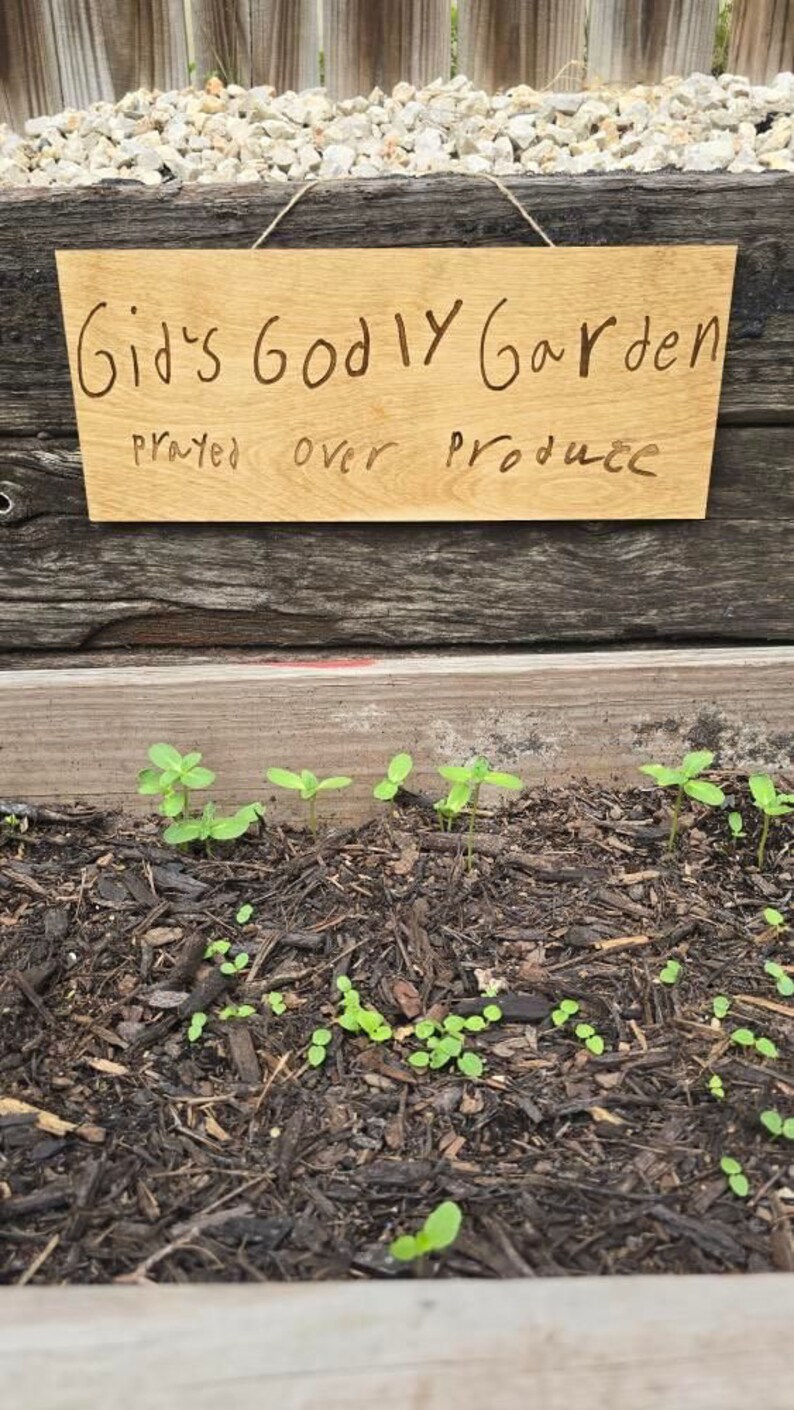 Gid's Godly Garden
Prayed over Produce